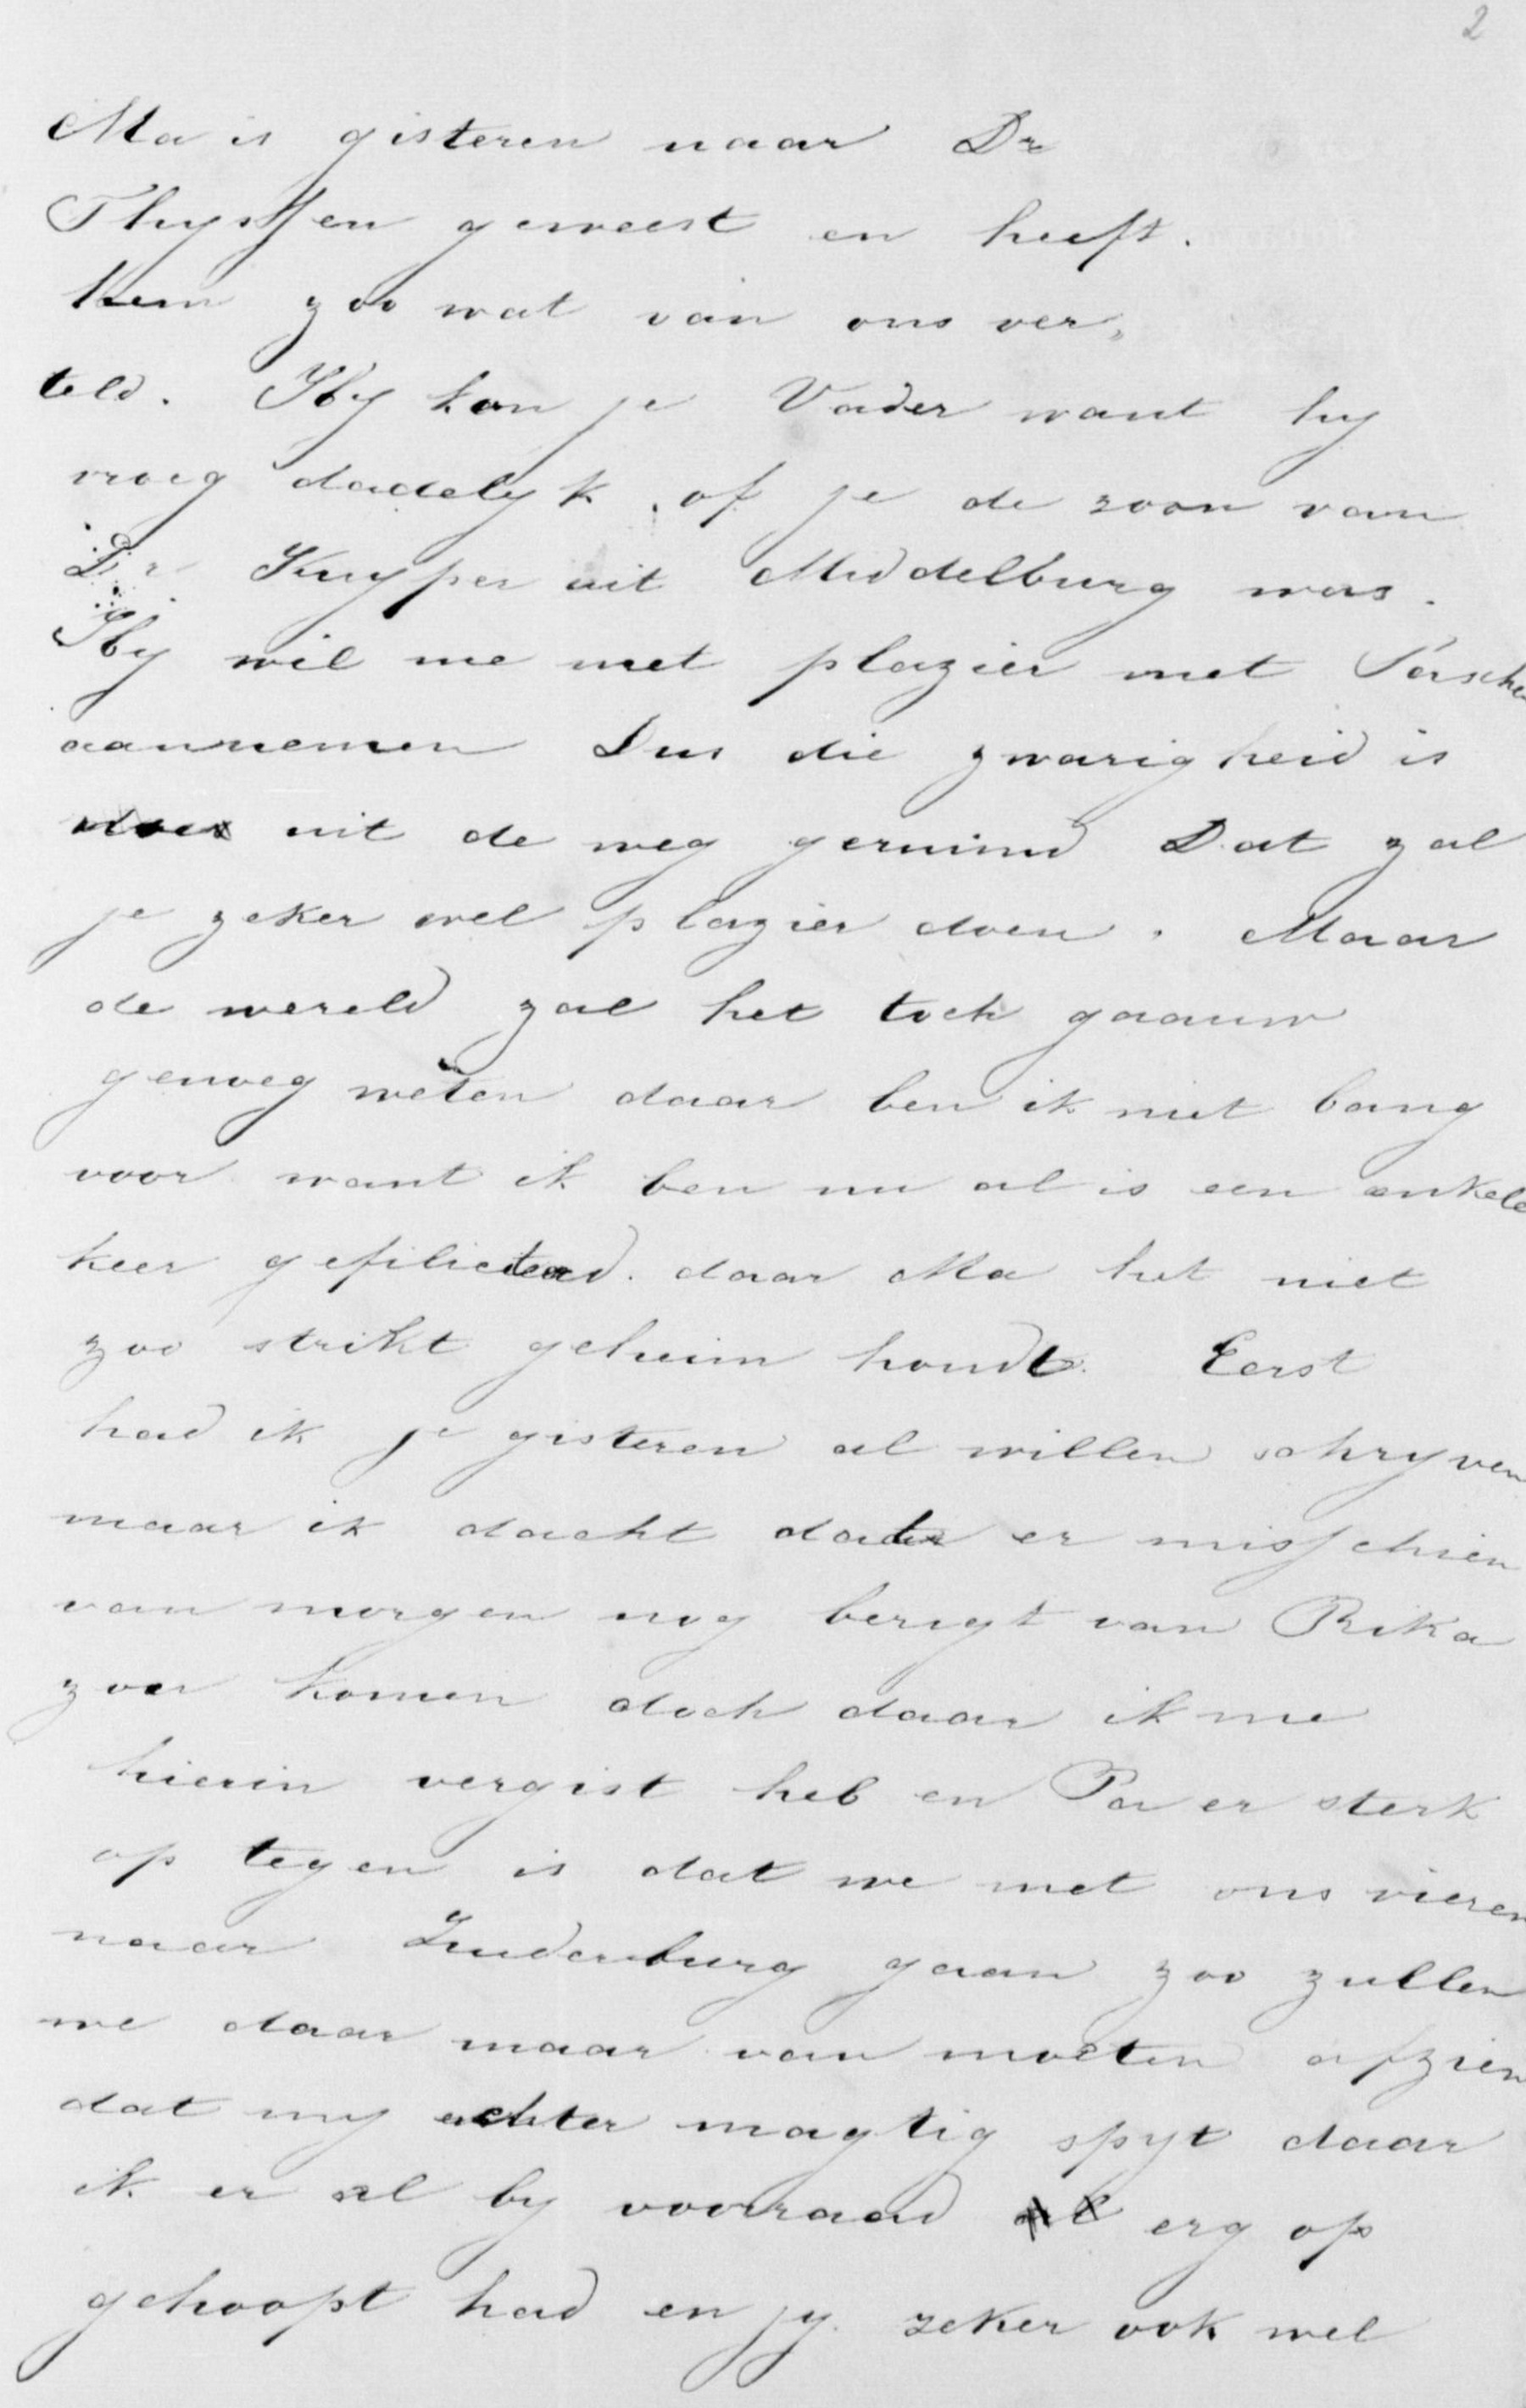 2
Ma is gisteren naar Dr
Thyssen geweest en heeft.
hem zoo wat van ons ver„
teld. Hy kon je Vader want hy
vroeg dadelyk of je de zoon van
Dr Kuyper uit Middelburg was.
Hy wil me met plazier met Paschen
aannemen Dus die zwarigheid is
uit de weg geruimd Dat zal
je zeker wel plazier doen. Maar
de wereld zal het toch gaauw
genoeg weten daar ben ik niet bang
voor want ik ben nu al is een enkele
keer gefiliciteerd. daar Ma het niet
zoo strikt geheim houdt. Eerst
had ik je gisteren al willen schryven
maar ik dacht dat er misschien
van morgen nog berigt van Rika
zou komen doch daar ik me
hierin vergist heb en Pa er sterk
op tegen is dat we met ons vieren
naar Zuidenburg gaan zoo zullen
we daar maar van moeten afzien
dat my echter magtig spyt daar
ik er al by voorraad al erg op
gehoopt had en jy zeker ook wel